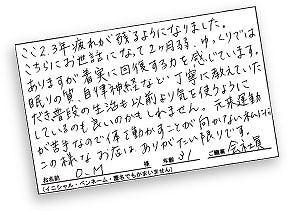 ここ2.3年疲れが残るようになりました。
こちらにお世話になって2ヶ月弱、ゆっくりでは
ありますが着実に回復する力を感じています。
眠りの質、自律神経など、丁寧に教えていた
だき普段の生活も以前より気を使うように
しているのも良いのかもしれません。元来運動
が苦手なので体を動かすことが向かない私には
この様なお店は、ありがたい限りです。
お名前 O.M 様 年齢 31 ご職業 会社員
(イニシャル・ペンネーム・匿名でもかまいません)